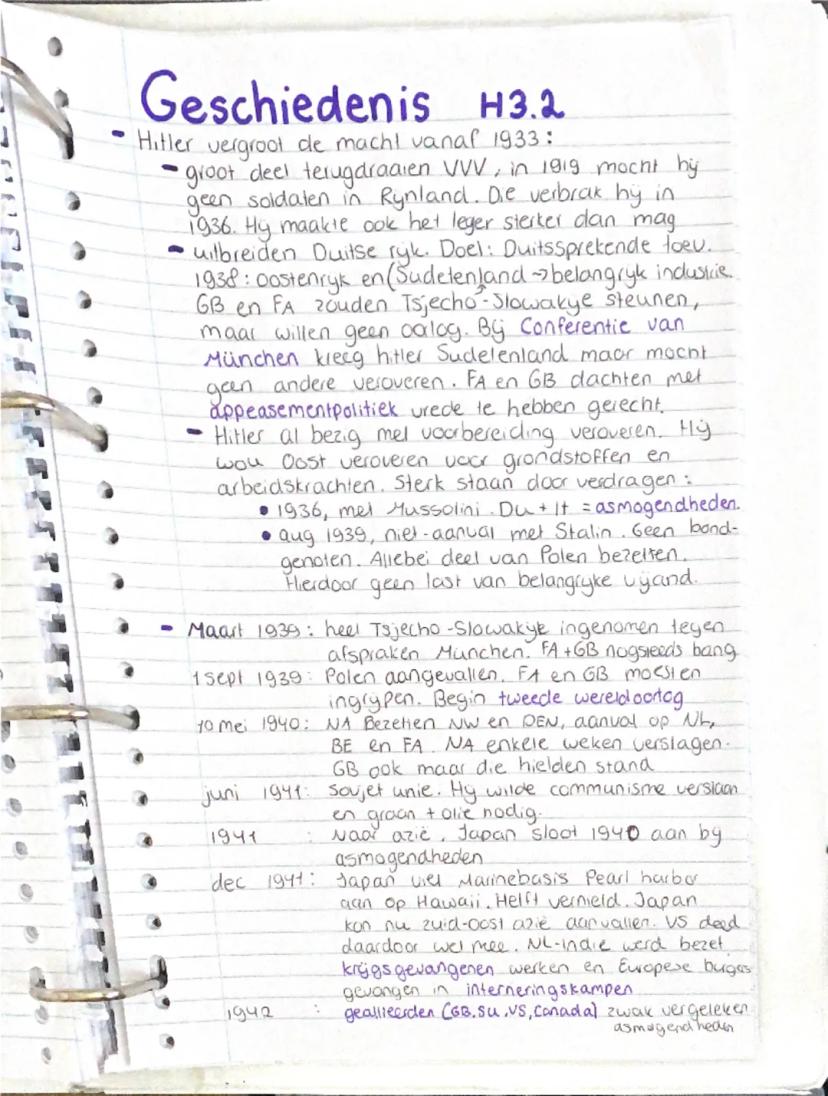 Geschiedenis H3.2
- Hitler vergroot de macht vanaf 1933:
- groot deel terugdraaien VVV, in 1919 mocht hij
geen soldaten in Rijnland. Die verbrak hij in
1936. Hij maakte ook het leger sterker dan mag
- uitbreiden Duitse rijk. Doel: Duitssprekende toev.
1938: Oostenrijk en (Sudetenland → belangrijk industrie.
GB en FA zouden Tsjecho-Slowakije steunen,
maar willen geen oorlog. Bij Conferentie van
München kreeg hitler Sudetenland maar mocht
geen andere veroveren. FA en GB dachten met
appeasementpolitiek vrede te hebben gerecht.
- Hitler al bezig met voorbereiding veroveren. Hij
wou Oost veroveren voor grondstoffen en
arbeidskrachten. Sterk staan door verdragen:
• 1936, met Mussolini. Du + It = asmogendheden.
• aug 1939, niet-aanval met Stalin. Geen bond-
genoten. Allebei deel van Polen bezetten.
Hierdoor geen last van belangrijke vijand.
- Maart 1939: heel Tsjecho-Slowakije ingenomen tegen
afspraken München. FA+GB nogsteeds bang
1 sept 1939: Polen aangevallen. FA en GB moesten
ingrijpen. Begin tweede wereldoorlog
10 mei 1940: NA Bezetten NW en DEN, aanval op NL,
BE en FA. NA enkele weken verslagen.
GB ook maar die hielden stand
juni 1941: Sovjet unie. Hij wilde communisme verslaan
en graan + olie nodig.
1941 : Naar azië. Japan sloot 1940 aan bij
asmogendheden
dec 1941: Japan viel Marinebasis Pearl harbor
aan op Hawaii. Helft vernield. Japan
kon nu zuid-oost azië aanvallen. VS deed
daardoor wel mee. NL-Indie werd bezet
krijgsgevangenen werken en Europese burgers
gevangen in interneringskampen
1942 : geallieerden (GB, SU, VS, Canada) zwak vergeleken
asmogendheden